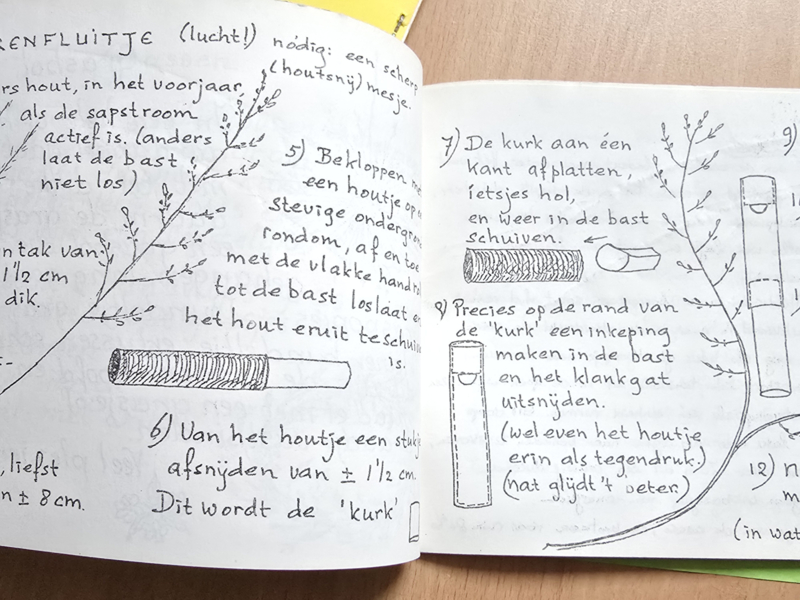 ENFLUITJE (lucht!) nodig: een scherp
(houtsnij) mesje.
ers hout, in het voorjaar,
als de sapstroom
actief is. (anders
laat de bast
niet los)
n tak van
1 1/2 cm
dik.
, liefst
n ± 8 cm.
5) Bekloppen met
een houtje op
stevige ondergro
rondom, af en toe
met de vlakke hand
tot de bast loslaat e
het hout eruit te schui
is.
6) Van het houtje een stukj
afsnijden van ± 1 1/2 cm.
Dit wordt de 'kurk'
7) De kurk aan één
kant afplatten,
ietsjes hol,
en weer in de bast
schuiven.
8) Precies op de rand van
de 'kurk' een inkeping
maken in de bast
en het klankgat
uitsnijden.
(wel even het houtje
erin als tegendruk.)
(nat glijdt 't beter.)
9)
12) n
m
(in wat